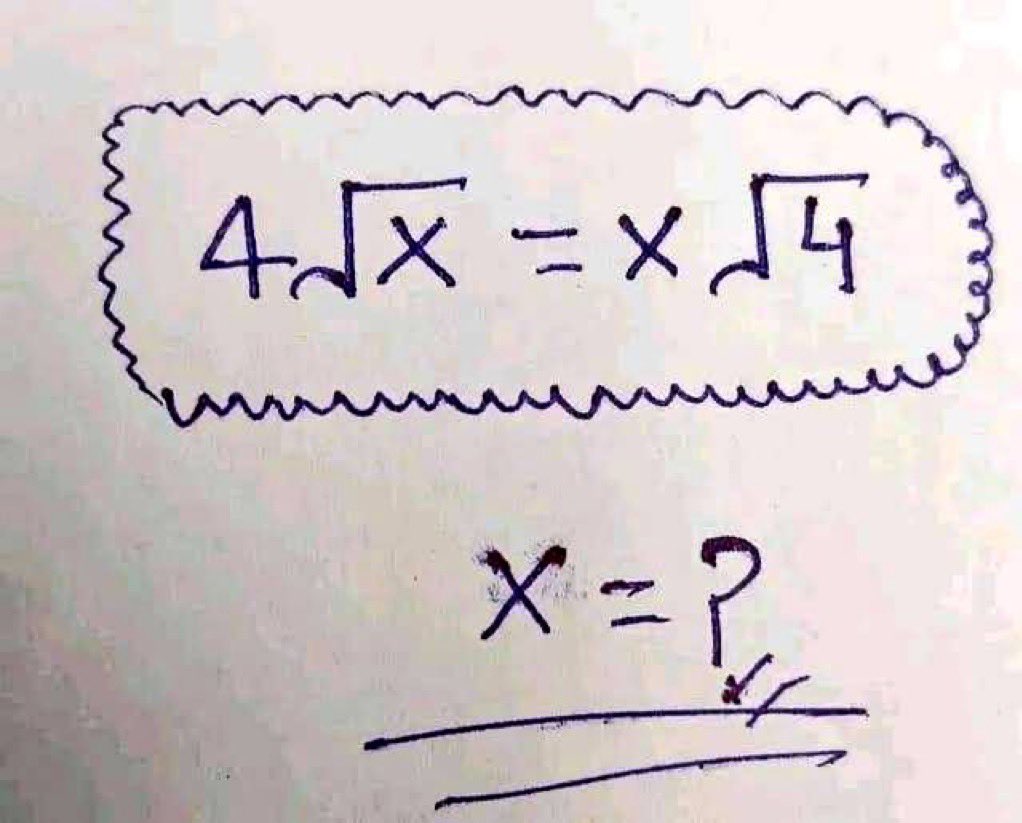 4√x = x√4
x = ?